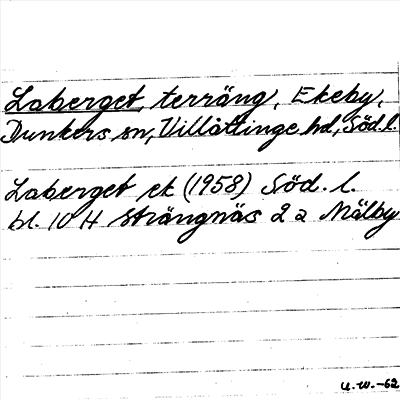 Laberget, terräng, Ekeby,
Dunkers sn, Villåttinge hd, Söd. l.
Laberget ek (1958) Söd. l.
bl. 10 H Strängnäs 2 a Mälby
U.W.-62